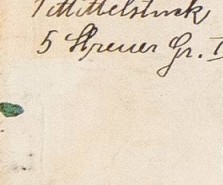 1 Mittelstück,
5 Streuer Gr. I